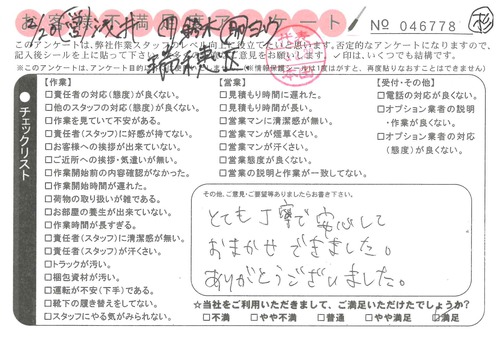 お客様不満アンケート
No 046778
杉
12/20 営 浅井
このアンケートは、弊社作業スタッフのレベル向上に役立てたいと思います。否定的なアンケートになりますので、
記入後シールを上に貼って下さい。
印は、いくつでも結構です。
チェックリスト
【作業】
□責任者の対応(態度)が良くない。
□他のスタッフの対応(態度)が良くない。
□作業を見ていて不安がある。
□責任者(スタッフ)に好感が持てない。
□お客様への挨拶が出来ていない。
□ご近所への挨拶・気遣いが無い。
□作業開始前の内容確認がなかった。
□作業開始時間が遅れた。
□荷物の取り扱いが雑である。
□お部屋の養生が出来ていない。
□作業時間が長すぎる。
□責任者(スタッフ)に清潔感が無い。
□責任者(スタッフ)が汗くさい。
□トラックが汚い。
□梱包資材が汚い。
□運転が不安(下手)である。
□靴下の履き替えをしてない。
□スタッフにやる気がみられない。
【営業】
□見積もり時間に遅れた。
□見積もり時間が長い。
□営業マンに清潔感が無い。
□営業マンが煙草くさい。
□営業マンが汗くさい。
□営業態度が良くない。
□営業の説明と作業が一致してない。
【受付・その他】
□電話の対応が良くない。
□オプション業者の説明
・作業が良くない。
□オプション業者の対応
(態度)が良くない。
その他、ご意見・ご要望等ありましたらお書き下さい。
とても丁寧で安心して
おまかせできました。
ありがとうございました。
☆当社をご利用いただきまして、ご満足いただけたでしょうか?
□不満 □やや不満 □普通 □やや満足 □満足